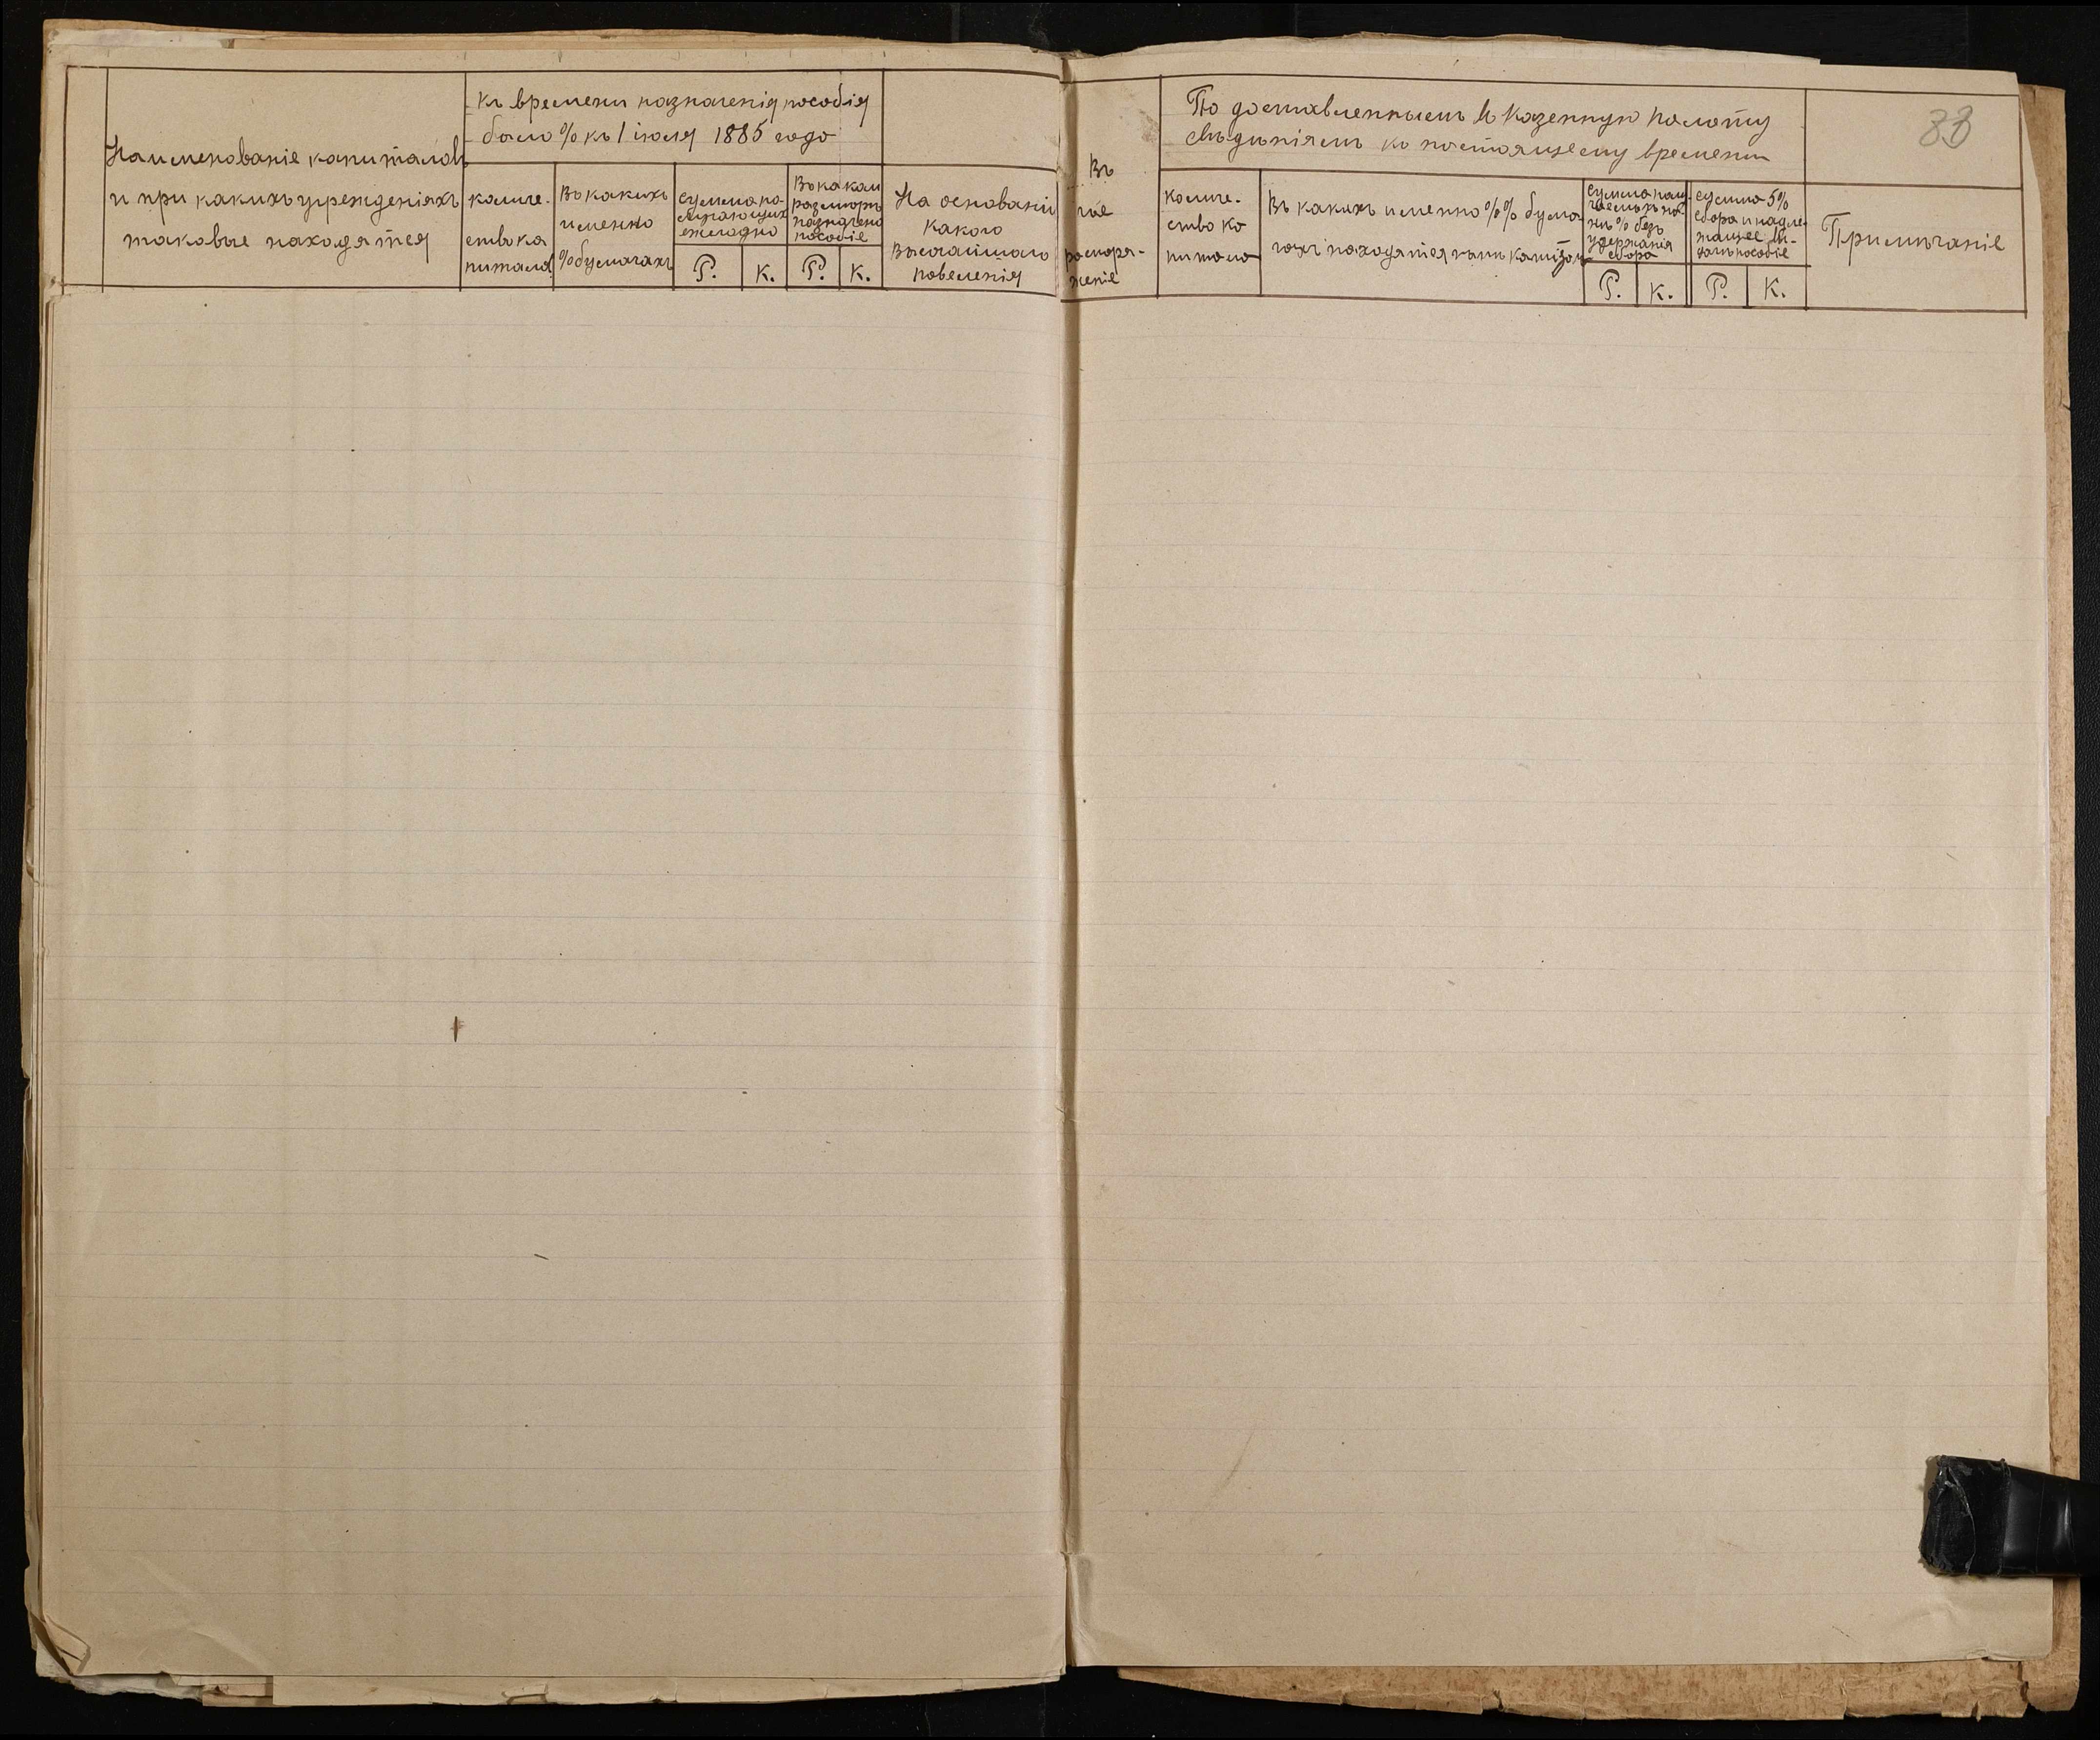 Наименованіе капиталовъ
и при какихъ учрежденіяхъ
таковые находятся
Къ времени назначенія пособія
было % къ 1 іюля 1885 года
количе-
ство ка
питала
Въ какихъ
именно
% бумагахъ
сумма по-
ступающихъ
ежегодно
Р. К.
Въ каком
размѣрѣ
назначено
пособіе
Р. К.
На основаніи
какого
Высочайшаго
повеленія
Въ
чье
распоря-
женіе
По доставленнымъ въ Казенную Палату
свѣдѣніямъ къ настоящему времени
Количе-
ство ка
питала
Въ какихъ именно %% бума-
гахъ находятся
сумма
% безъ
удержанія
сбора
Р. К.
сумма 5%
сбора и надле-
жащее
пособіе
Р. К.
Примѣчаніе